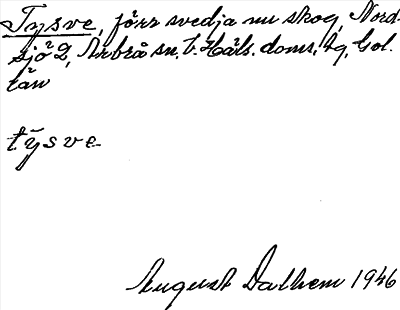 Tysve, förr svedja nu skog, Nord-
sjö 2, Arbrå sn, V. Häls. doms. tg, Gäl.
län
tysve
August Dalhem 1946